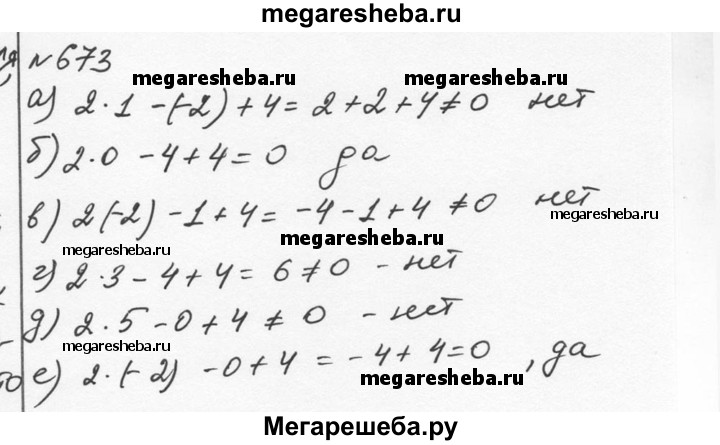 megaresheba.ru
№673
megaresheba.ru megaresheba.ru
а) 2·1 -(-2)+4= 2+2+4≠0 нет
б) 2·0 -4+4=0 да
в) 2(-2) -1+4= -4-1+4 ≠0 нет
megaresheba.ru
megaresheba.ru megaresheba.ru
г) 2·3-4+4= 6≠0 - нет
д) 2·5-0+4 ≠ 0 - нет
megaresheba.ru
е) 2·(-2) -0+4 = -4+4=0, да
megaresheba.ru
Мегарешеба.ру